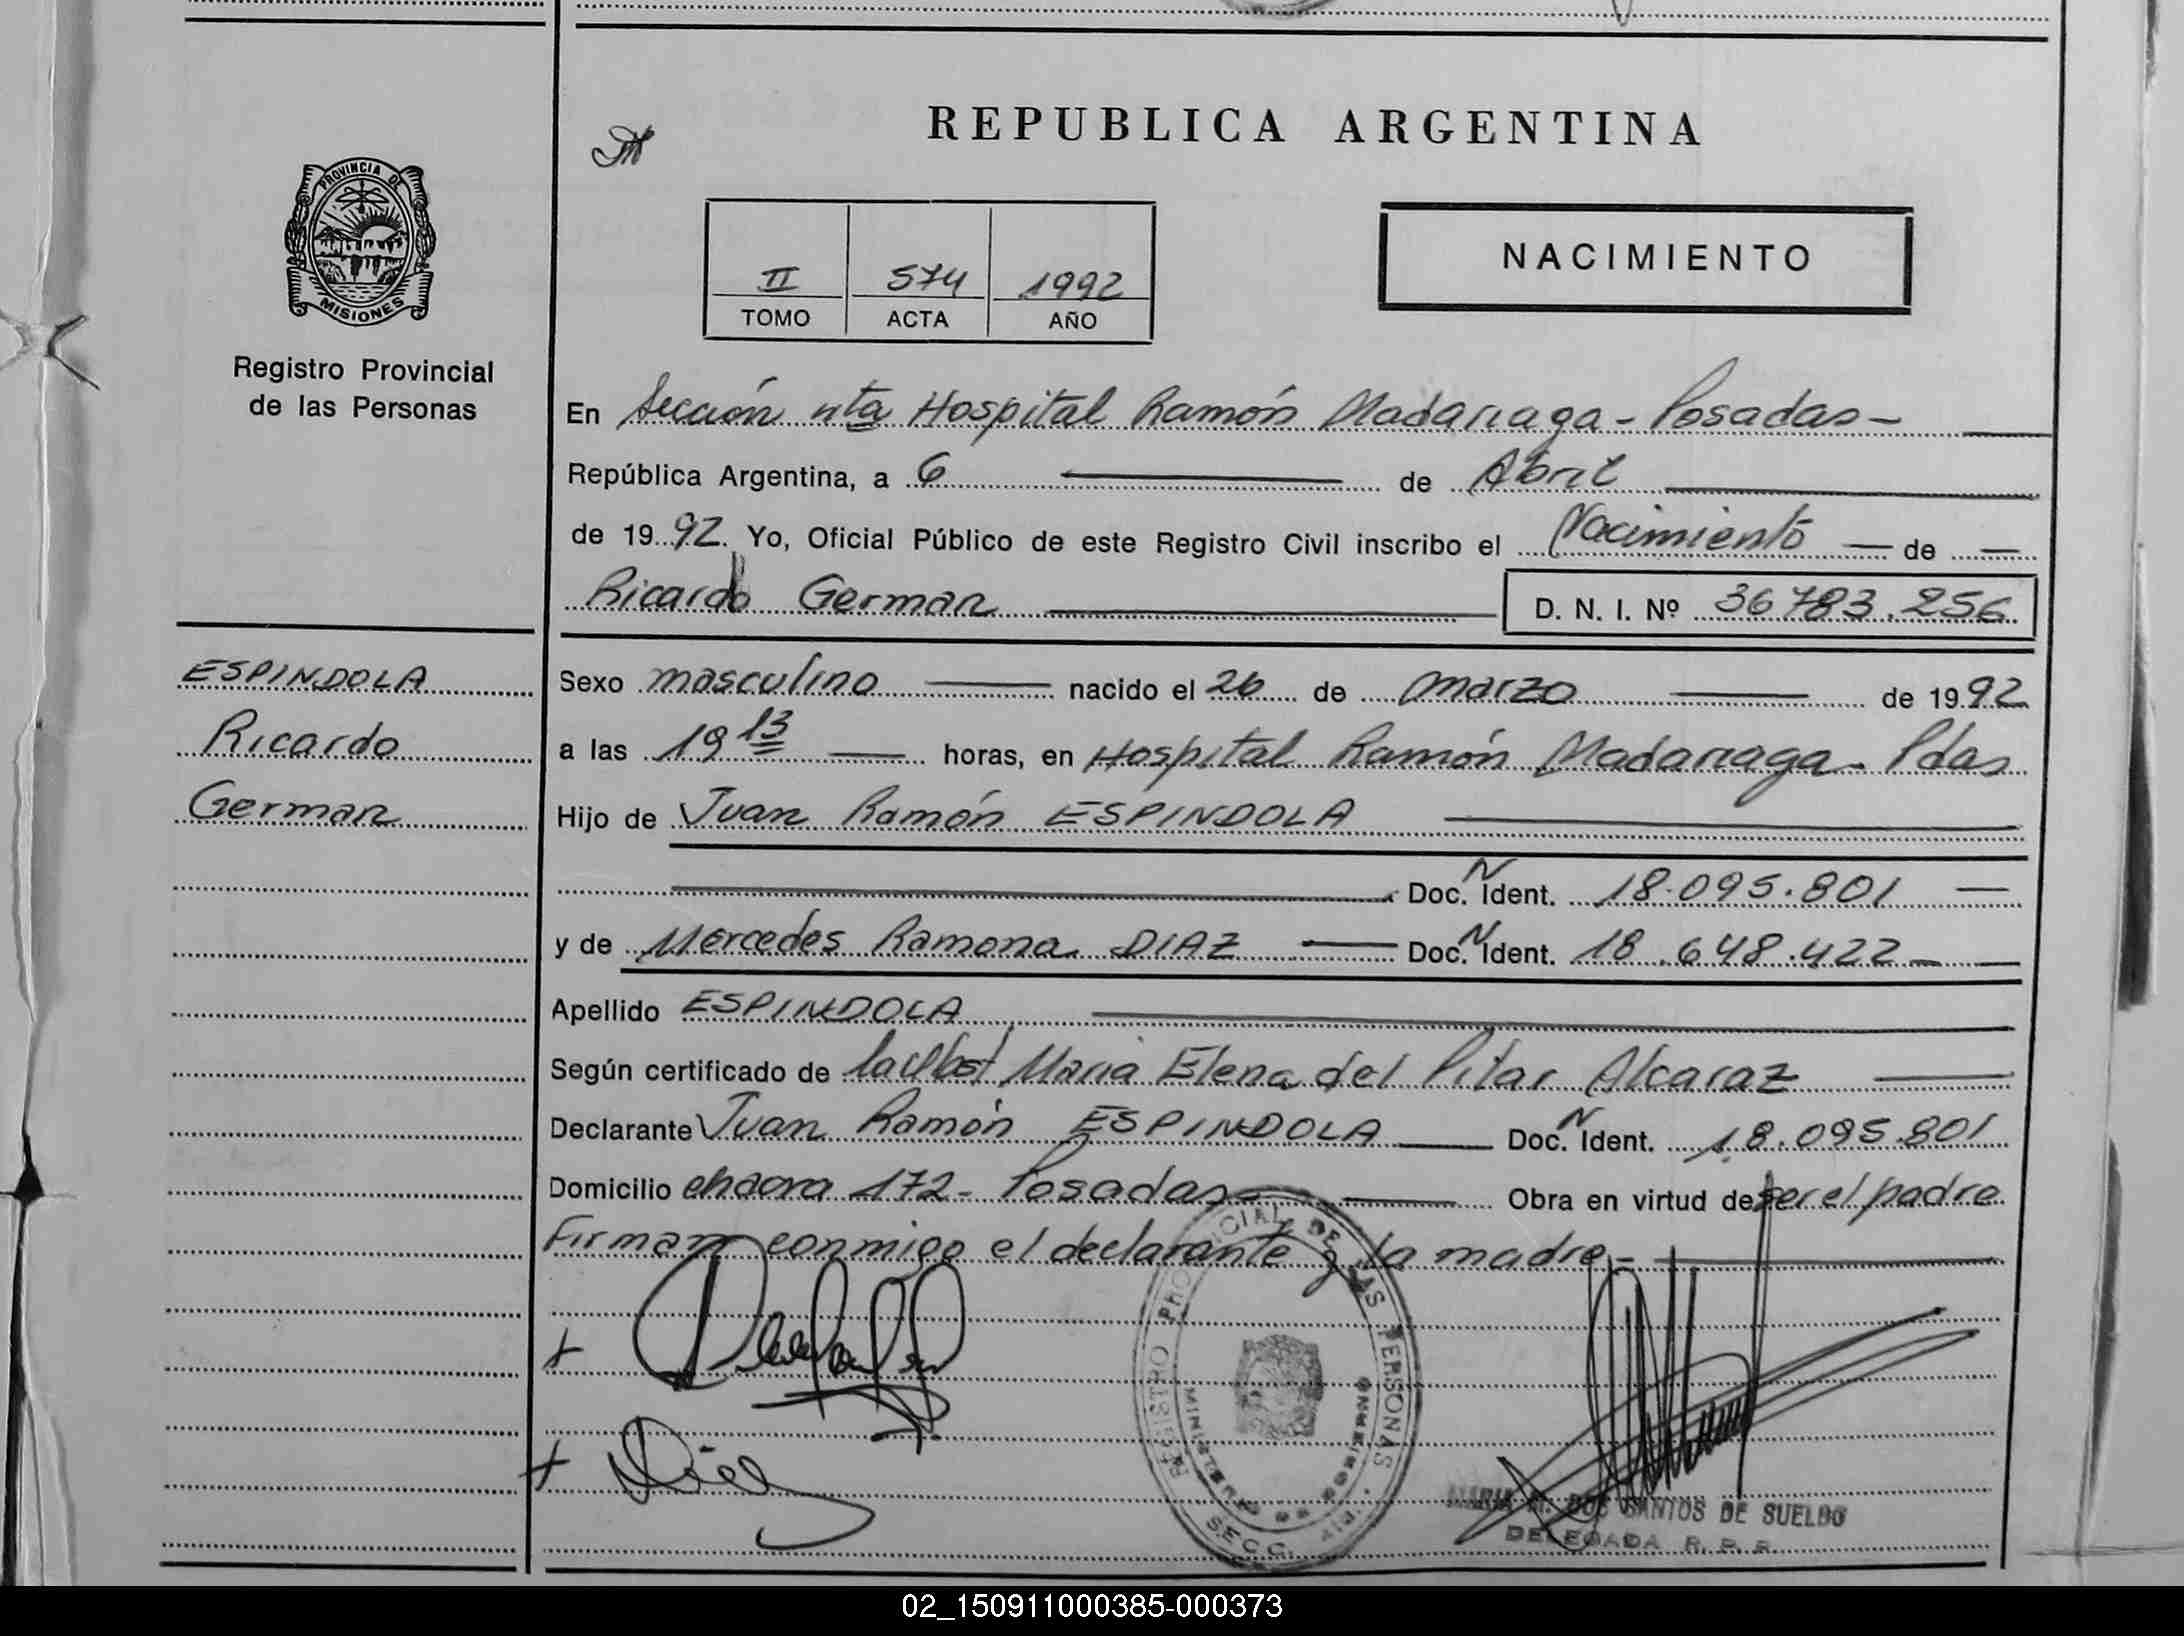 REPUBLICA ARGENTINA
PROVINCIA DE
MISIONES
Registro Provincial
de las Personas
II 574 1992
TOMO ACTA AÑO
NACIMIENTO
En Sección 4ta Hospital Ramón Madariaga - Posadas -
República Argentina, a 6 de Abril
de 1992. Yo, Oficial Público de este Registro Civil inscribo el Nacimiento de
Ricardo German D. N. I. Nº 36.783.256
ESPINDOLA
Ricardo
German
Sexo masculino nacido el 26 de marzo de 1992
a las 19 13 horas, en Hospital Ramón Madariaga - Pdas
Hijo de Juan Ramón ESPINDOLA
Doc. N Ident. 18.095.801
y de Mercedes Ramona DIAZ Doc. N Ident. 18.648.422
Apellido ESPINDOLA
Según certificado de la Obst Maria Elena del Pilar Alcaraz
Declarante Juan Ramón ESPINDOLA Doc. N Ident. 18.095.801
Domicilio chacra 172 - Posadas Obra en virtud de ser el padre
Firman conmigo el declarante y la madre -
REGISTRO PROVINCIAL DE LAS PERSONAS
SECC.
MARIA DOS SANTOS DE SUELDO
DELEGADA R. P. P.
02_150911000385-000373